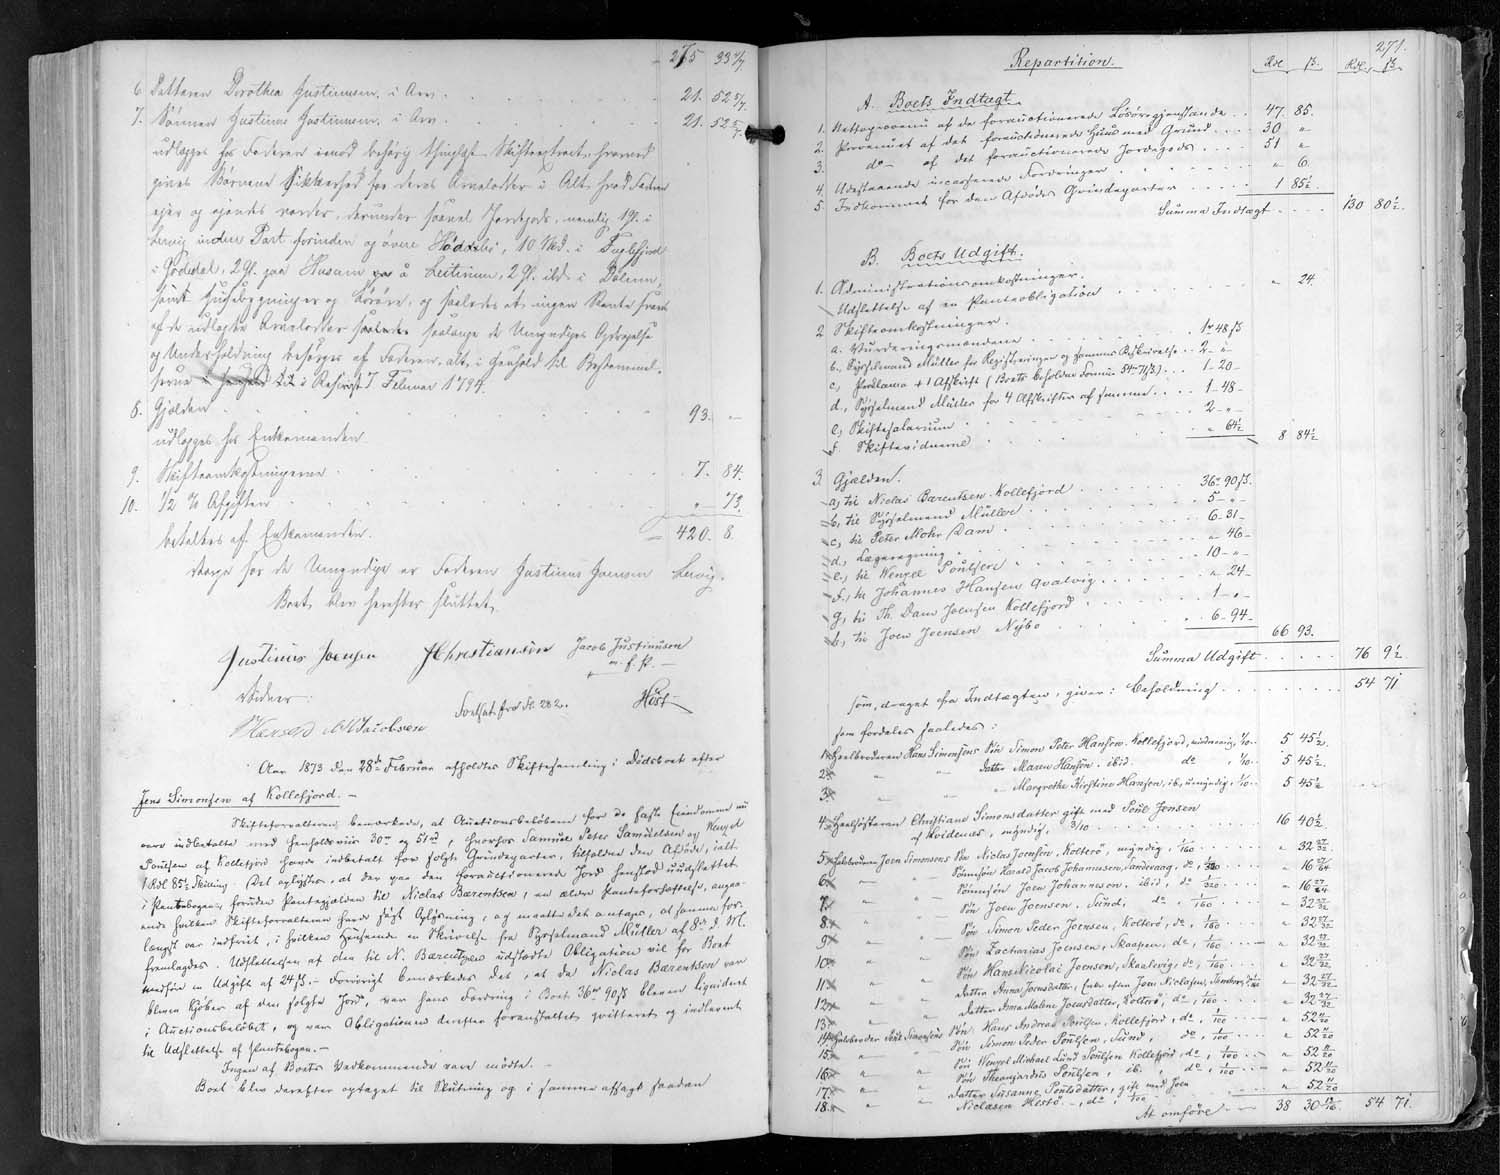 275 33 4/7
6. Datteren Dorothea Justinussen i Arv 21. 52 5/7
7. Sønnen Justinus Justinussen i Arv 21. 52 5/7
udlægges hos Faderen imod behørig thinglæst Skifteextract, hvorved
gives Børnene Sikkerhed for deres Arvelodder i Alt hvad Faderen
ejer og ejendes vorder, derunder saavel Jordegods, nemlig 1 gl. i
Lervig inden Part forinden og øvere 10 Skd. i Fuglefjord
i Gødedal, 2 gl. paa Husum å Leitinum, 2 gl. ibd. i Dølum,
samt Husebygninger og Løsøre, og saaledes at ingen Rente svares
af de udlagte Arvelodder saalænge de Umyndiges Opdragelse
og Underholdning besørges af Faderen, alt i Henhold til Bestemmel-
serne i Rescript 7 Februar 1794.
8. Gjælden 93. "
udlægges hos Enkemanden
9. Skifteomkostningerne 7. 84.
10. 1/2 % Afgiften " 73.
betaltes af Enkemanden. 420. 8.
Værge for de Umyndige er Faderen Justinus Joensen Lervig.
Boet blev herefter sluttet.
Justinus Joensen JChristiansen Jacob Justinussen
m. f. P.
Vidner: Fortsat fra fl. 282. Høst
M Jacobsen
Aar 1873 den 28de Februar afholdtes Skiftesamling i Dødsboet efter
Jens Simonsen af Kollefjord. —
Skifteforvalteren bemærkede, at Auctionsbeløbene for de faste Eiendomme nu
vare indbetalte med henholdsviis 30rd og 51rd, hvorhos Samuel Peter Samuelsen og Wenzel
Poulsen af Kollefjord havde indbetalt for solgte Grindeparter, tilfaldne den Afdøde, ialt
1 Rdl 85½ Skilling. Det oplystes, at der paa den forauctionerede Jord henstod uudslettet
i Pantebogen, foruden Pantegjælden til Niclas Bærentsen, en ældre Panteforskrivelse, angaa-
ende hvilken Skifteforvalteren havde søgt Oplysning, og maatte det antages, at samme for-
længst var indfriet, i hvilken Henseende en Skrivelse fra Sysselmand Müller af 8de d. M.
fremlagdes. Udslettelsen af den til N. Bærentzen udstedte Obligation vil for Boet
medføre en Udgift af 24 ß. — Forøvrigt bemærkedes det, at da Niclas Bærentsen var
bleven Kjøber af den solgte Jord, var hans Fordring i Boet 36rd 90 ß bleven liquideret
i Auctionsbeløbet, og var Obligationen derefter foranstaltet qvitteret og indleveret
til Udslettelse af Pantebogen. —
Ingen af Boets Vedkommende vare mødte. —
Boet blev derefter optaget til Slutning og i samme afsagt saadan
271.
Repartition. Rdl ß. Rdl. ß
A. Boets Indtægt.
1. Nettoprovenu af de forauctionerede Løsøregjenstande 47. 85.
2. Provenuet af det forauctionerede Huus med Grund 30 "
3. do af det forauctionerede Jordegods 51 "
4. Udestaaende incasserede Fordringer " 6.
5. Indkommet for den Afdødes Grindeparter 1 85½.
Summa Indtægt 130 80½.
B. Boets Udgift.
1. Administrationsomkostninger.
Udslettelse af en Panteobligation " 24.
2 Skifteomkostninger.
a. Vurderingsmændene 1rd 48 ß
b., Sysselmand Müller for Registreringer og sammes Afskrivelse 2 - " -
c, Proclama + 1 Afskrift (Boets beholdne Formue 54rd 71 ß) 1 - 20 -
d., Sysselmand Müller for 4 Afskrifter af samme 1 - 48 -
e, Skiftesalarium 2 - " -
f. Skiftevidnerne " 64½ 8 84½
3. Gjælden.
a, til Niclas Bærentsen Kollefjord 36rd 90 ß.
b, til Sysselmand Müller 5 - " -
c, til Peter Mohr Dam 6 - 31 -
d., Lægeregning " 46 -
e., til Wenzel Poulsen 10 - " -
f., til Johannes Hansen Qvalvig " 24 -
g, til Th. Dam Joensen Kollefjord 1 - " -
h, til Joen Joensen Nybo 6 - 94 - 66 93.
Summa Udgift 76 9½
som, draget fra Indtægten, giver: Beholdning 54 71
som fordeles saaledes:
1. Heelbroderen Hans Simonsens Søn Simon Peter Hansen, Kollefjord, mindreårig, 1/10 5 45½.
2. " " Datter Maren Hansen, ibid. do 1/10 5 45½.
3. " " " Margrethe Kirstine Hansen, ib, umyndig, 1/10 5 45½
4. Heelsøsteren Christiane Simonsdatter gift med Poul Jensen
af Hvidenes, myndig, 3/10 16 40½.
5. Halvbroderen Joen Simonsens Søn Niclas Joensen, Kolterø, myndig, 1/160 " 32 27/32.
6. " " Sønnesøn Harald Jacob Johannessen, Sandevaag, do, 1/320 " 16 27/64
7. " " Sønnesøn Joen Johannesen, ibid, do 1/320 " 16 27/64
8. " " Søn Joen Joensen, Sund, do, 1/160 " 32 27/32
9. " " Søn Simon Peder Joensen, Kolterø, do, 1/160 " 32 27/32
10. " " Søn Zacharias Joensen, Skaapen, do, 1/160 " 32 27/32
11. " " Søn Hans Nicolai Joensen, Skaalevig, do, 1/160 " 32 27/32
12. " " Datter Anna Joensdatter, Enke efter Joen Niclasen, do 1/160 " 32 27/32
13. " " Datter Anna Malene Joensdatter, Kolterø, do, 1/160 " 32 27/32
14. Halvbroder Poul Simonsens Søn Hans Andreas Poulsen, Kollefjord, do, 1/100 " 52 11/20
15. " " Søn Simon Peder Poulsen, Sund, do, 1/100 " 52 11/20
16. " " Søn Wenzel Michael Lund Poulsen Kollefjord, do, 1/100 " 52 11/20
17. " " Søn Thomgardus Poulsen, ib. do, 1/100 " 52 11/20
18. " " Datter Susanne Poulsdatter, gift med Joen
Niclasen Hestø, do, 1/100 " 52 11/20
At omføre 38 30 54 71.